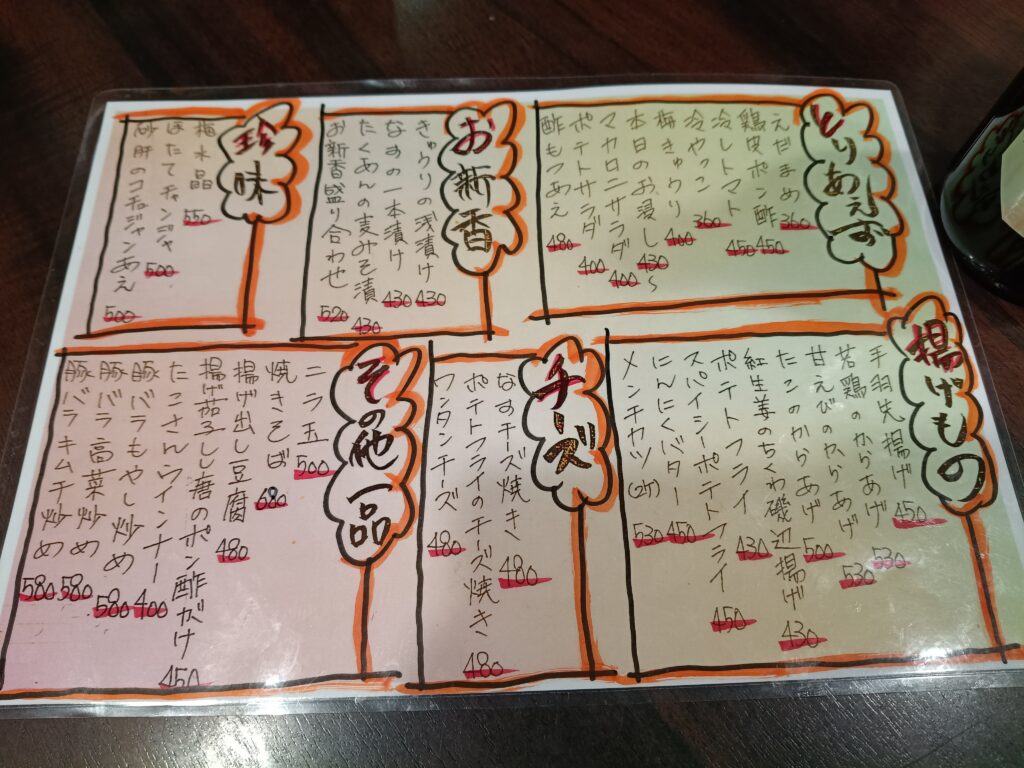 とりあえず
えだまめ 360
鶏皮ポン酢 450
冷しトマト 450
冷やっこ 360
梅きゅうり 400
本日のお浸し 430~
マカロニサラダ 400
ポテトサラダ 400
酢もつあえ 480
お新香
きゅうりの浅漬け 430
なすの一本漬け 430
たくあんの麦みそ漬 430
お新香盛り合わせ 520
珍味
梅水晶 550
ほたてチャンジャ 500
砂肝のコチュジャンあえ 500
揚げもの
手羽先揚げ 450
若鶏のからあげ 530
甘えびのからあげ 530
たこのからあげ 500
紅生姜のちくわ磯辺揚げ 430
ポテトフライ 430
スパイシーポテトフライ 450
にんにくバター 450
メンチカツ(2ケ) 530
チーズ
なすチーズ焼き 480
ポテトフライのチーズ焼き 480
ワンタンチーズ 480
その他一品
ニラ玉 500
焼きそば 680
揚げ出し豆腐 480
揚げ茄子しし唐のポン酢がけ 450
たこさんウインナー 400
豚バラもやし炒め 580
豚バラ高菜炒め 580
豚バラキムチ炒め 580